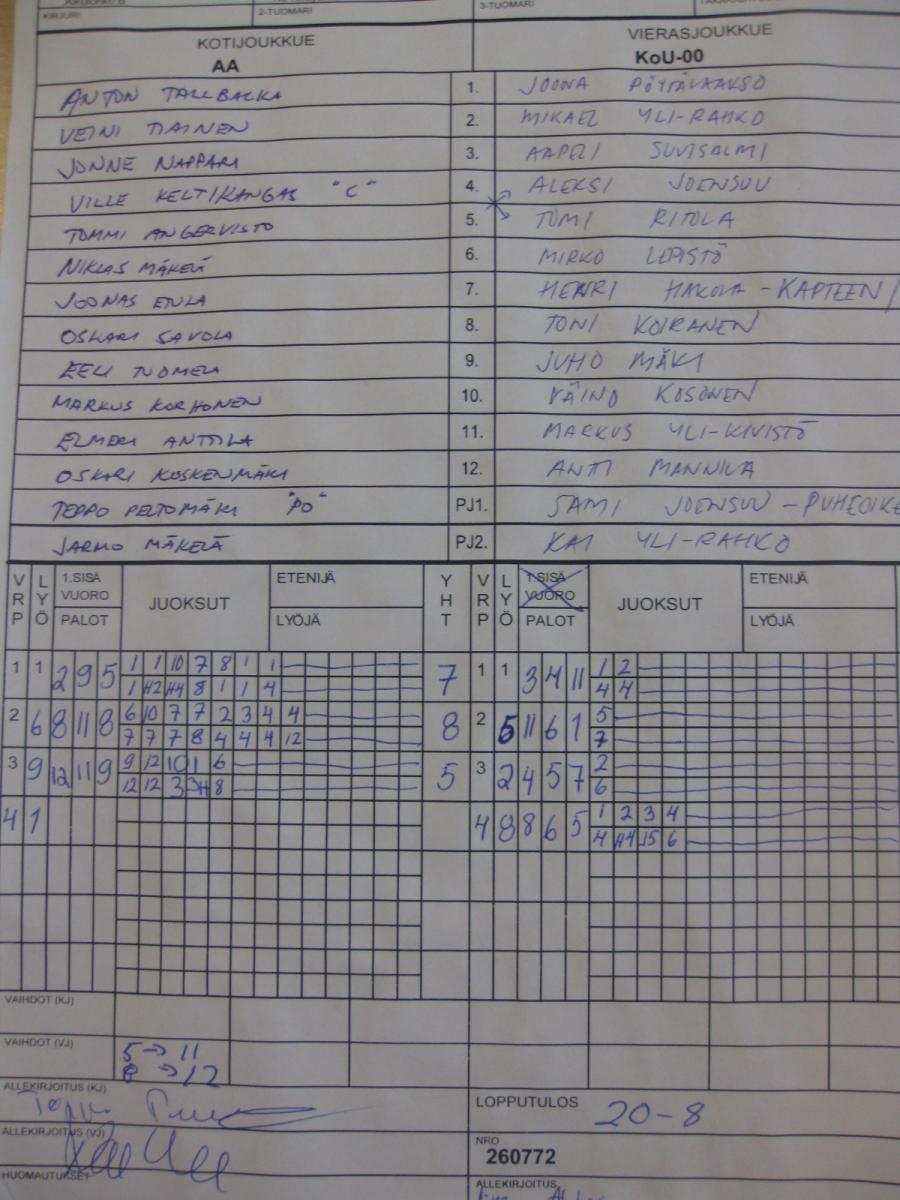 KIRJURI 2-TUOMARI 3-TUOMARI
KOTIJOUKKUE VIERASJOUKKUE
AA KoU-00
ANTON TALLBACKA 1. JOONA PÖYTÄLAAKSO
VEINI TIAINEN 2. MIKAEL YLI-RAHKO
JONNE NAPPARI 3. AAPELI SUVISALMI
VILLE KELTIKANGAS "C" 4. ALEKSI JOENSUU
TOMMI ANGERVISTO 5. TOMI RITOLA
NIKLAS MÄKELÄ 6. MIRKO LEPISTÖ
JOONAS ETULA 7. HENRI HAKOLA - KAPTEENI
OSKARI SAVOLA 8. TONI KOIRANEN
EELI TUOMELA 9. JUHO MÄKI
MARKUS KORHONEN 10. VÄINÖ KOSONEN
ELMERI ANTTILA 11. MARKUS YLI-KIVISTÖ
OSKARI KOSKENMÄKI 12. ANTI MANNILA
TEPPO PELTOMÄKI "PO" PJ1. SAMI JOENSUU - PUHEOIKE
JARMO MÄKELÄ PJ2. KAI YLI-RAHKO
VRP LYÖ 1.SISÄ VUORO PALOT JUOKSUT ETENIJÄ LYÖJÄ YHT VRP LYÖ 1.SISÄ VUORO PALOT JUOKSUT ETENIJÄ LYÖJÄ
1 1 2 9 5 1 1 10 7 8 1 1 7 1 1 3 4 11 1 2
1 H2 H4 8 1 1 4 4 4
2 6 8 11 8 6 10 7 7 2 3 4 4 8 2 5 11 6 1 5
7 7 7 8 4 4 4 12 7
3 9 12 11 9 9 12 10 1 6 5 3 2 4 5 7 2
12 12 3 3 H8 6
4 1 4 8 8 6 5 1 2 3 4
4 H4 15 6
VAIHDOT (KJ)
VAIHDOT (VJ) 5 → 11
8 → 12
ALLEKIRJOITUS (KJ)
LOPPUTULOS 20-8
ALLEKIRJOITUS (VJ)
NRO
260772
HUOMAUTUKSET
ALLEKIRJOITUS